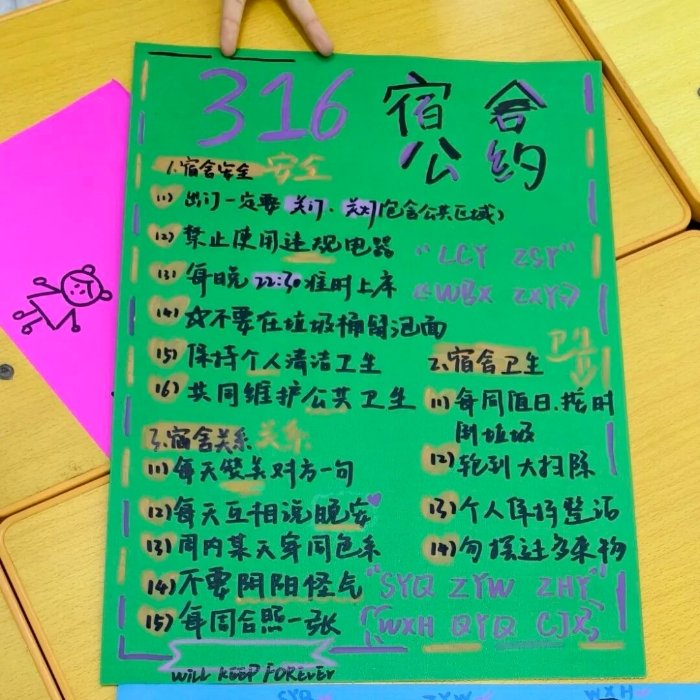 316 宿舍
公约
1.宿舍安全 安全
(1) 出门一定要关门、关灯(包含公共区域)
(2) 禁止使用违规电器
(3) 每晚22:30准时上床
"LCY ZSY"
WBX ZXY
(4) ☆不要在垃圾桶留泡面
(5) 保持个人清洁卫生
(6) 共同维护公共卫生
2.宿舍卫生 卫生
(1) 每周值日、按时
倒垃圾
(2) 轮到大扫除
(3) 个人保持整洁
(4) 勿摆过多杂物
3.宿舍关系 关系
(1) 每天赞美对方一句
(2) 每天互相说晚安
(3) 周内某天穿同色系
(4) 不要阴阳怪气
(5) 每周合照一张
"SYQ ZYW ZHY"
WXH QYQ CJX
WILL KEEP FOREVER
SYQ ZYW WXH